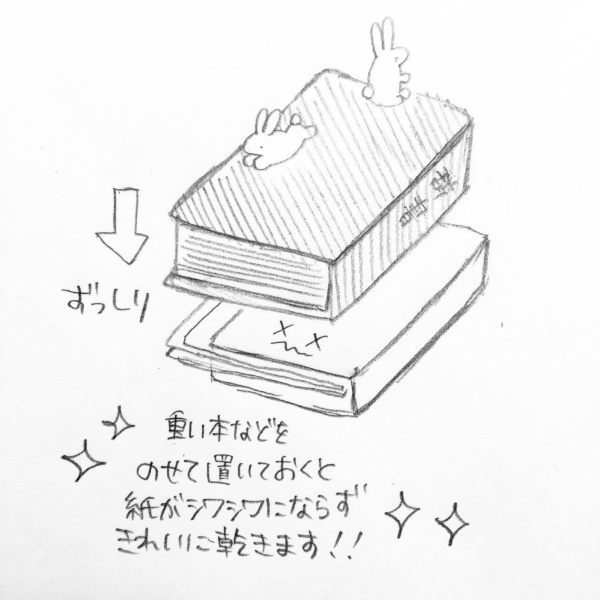 辞書
ずっしり
重い本などを
のせて置いておくと
紙がシワシワにならず
きれいに乾きます!!